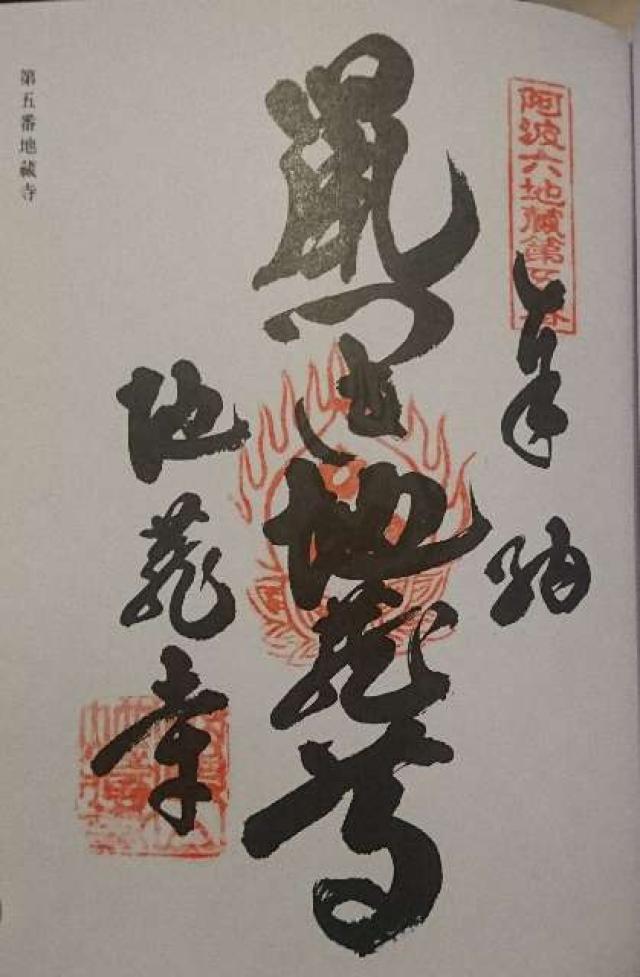 阿波六地蔵第五番
奉納
地蔵尊
地蔵寺
第五番地蔵寺